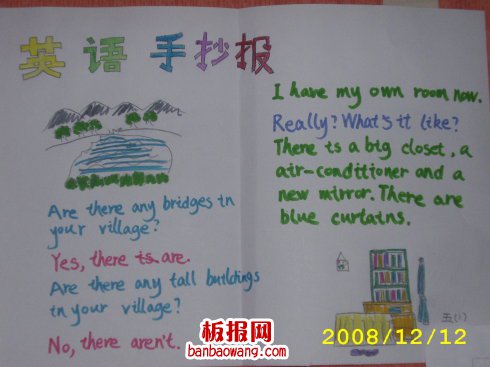 英语手抄报
Are there any bridges in
your village?
Yes, there is are.
Are there any tall buildings
in your village?
No, there aren't.
I have my own room now.
Really? What's it like?
There is a big closet, a
air-conditioner and a
new mirror. There are
blue curtains.
五(1)
板报网
banbaowang.com
2008/12/12